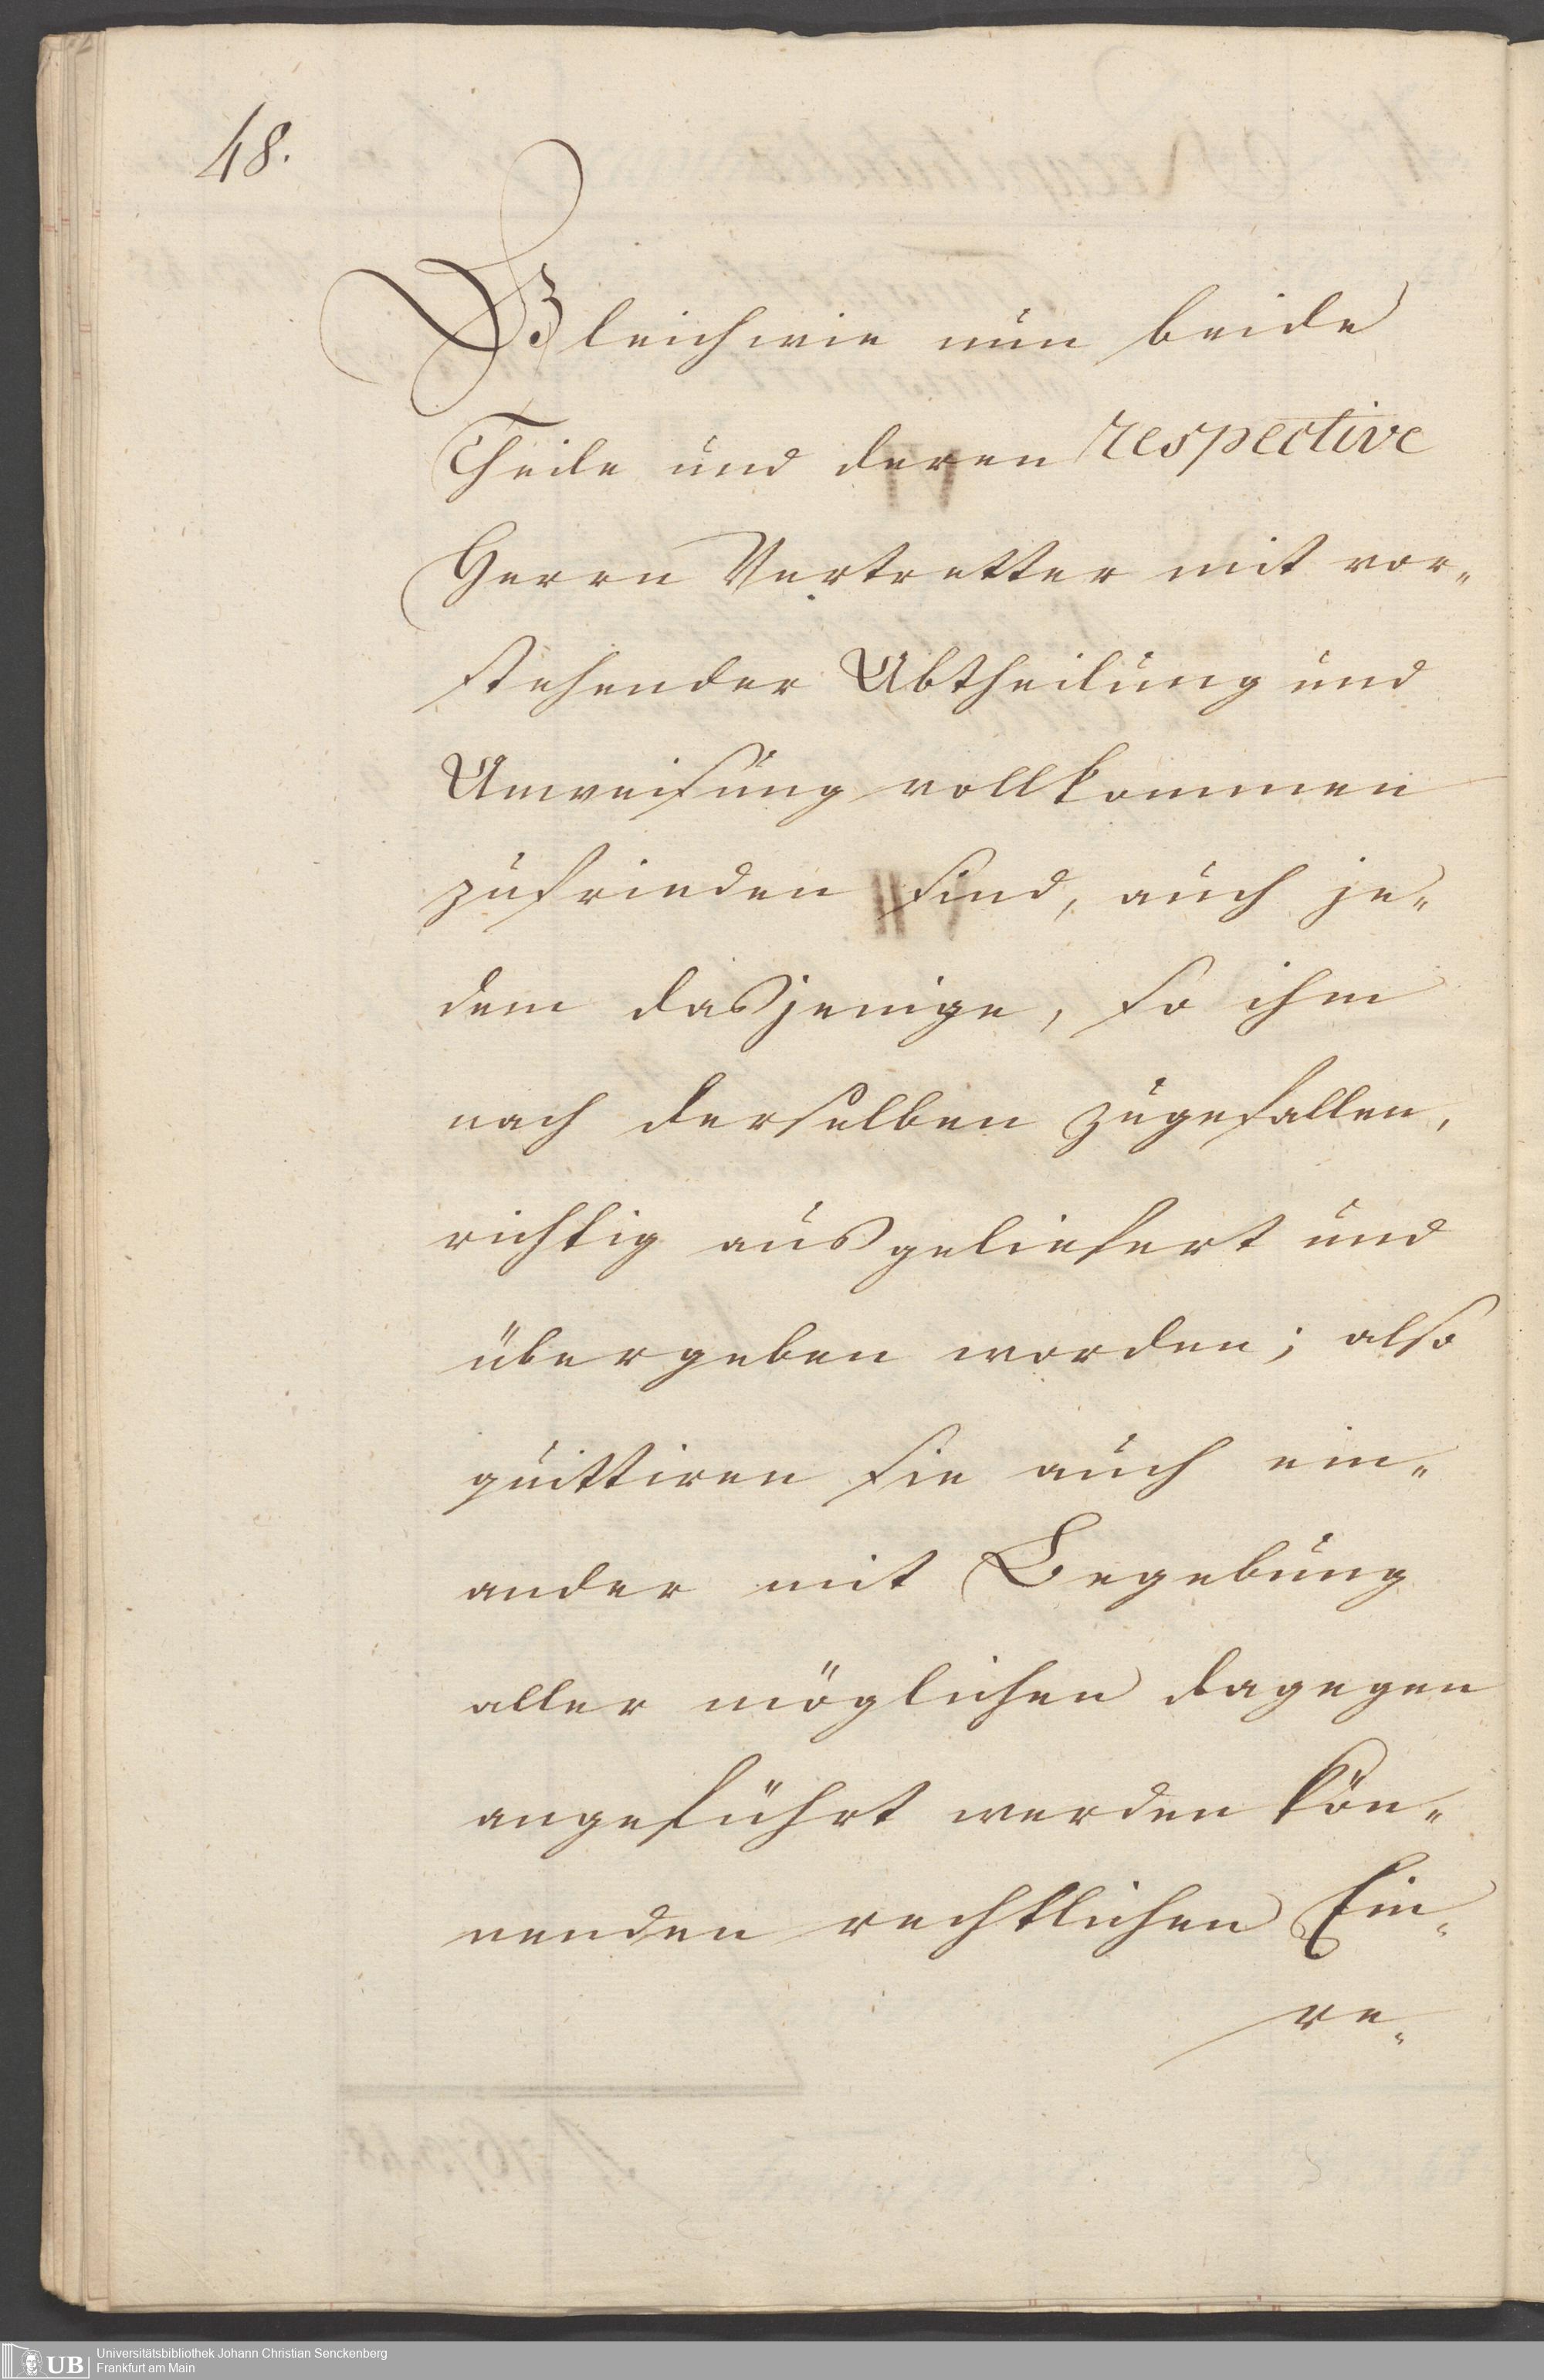 48.
Gleichwie nun beide
Theile und deren respective
Herrn Vertretter mit vor„
stehender Abtheilung und
Anweisung vollkommen
zufrieden sind, auch je„
dem dasjenige, so ihm
nach derselben zugefallen,
richtig ausgeliefert und
übergeben worden; also
quittiren sie auch ein„
ander mit Begebung
aller möglichen dagegen
angeführt werden kön„
nenden rechtlichen Ein„
re„
UB
Universitätsbibliothek Johann Christian Senckenberg
Frankfurt am Main